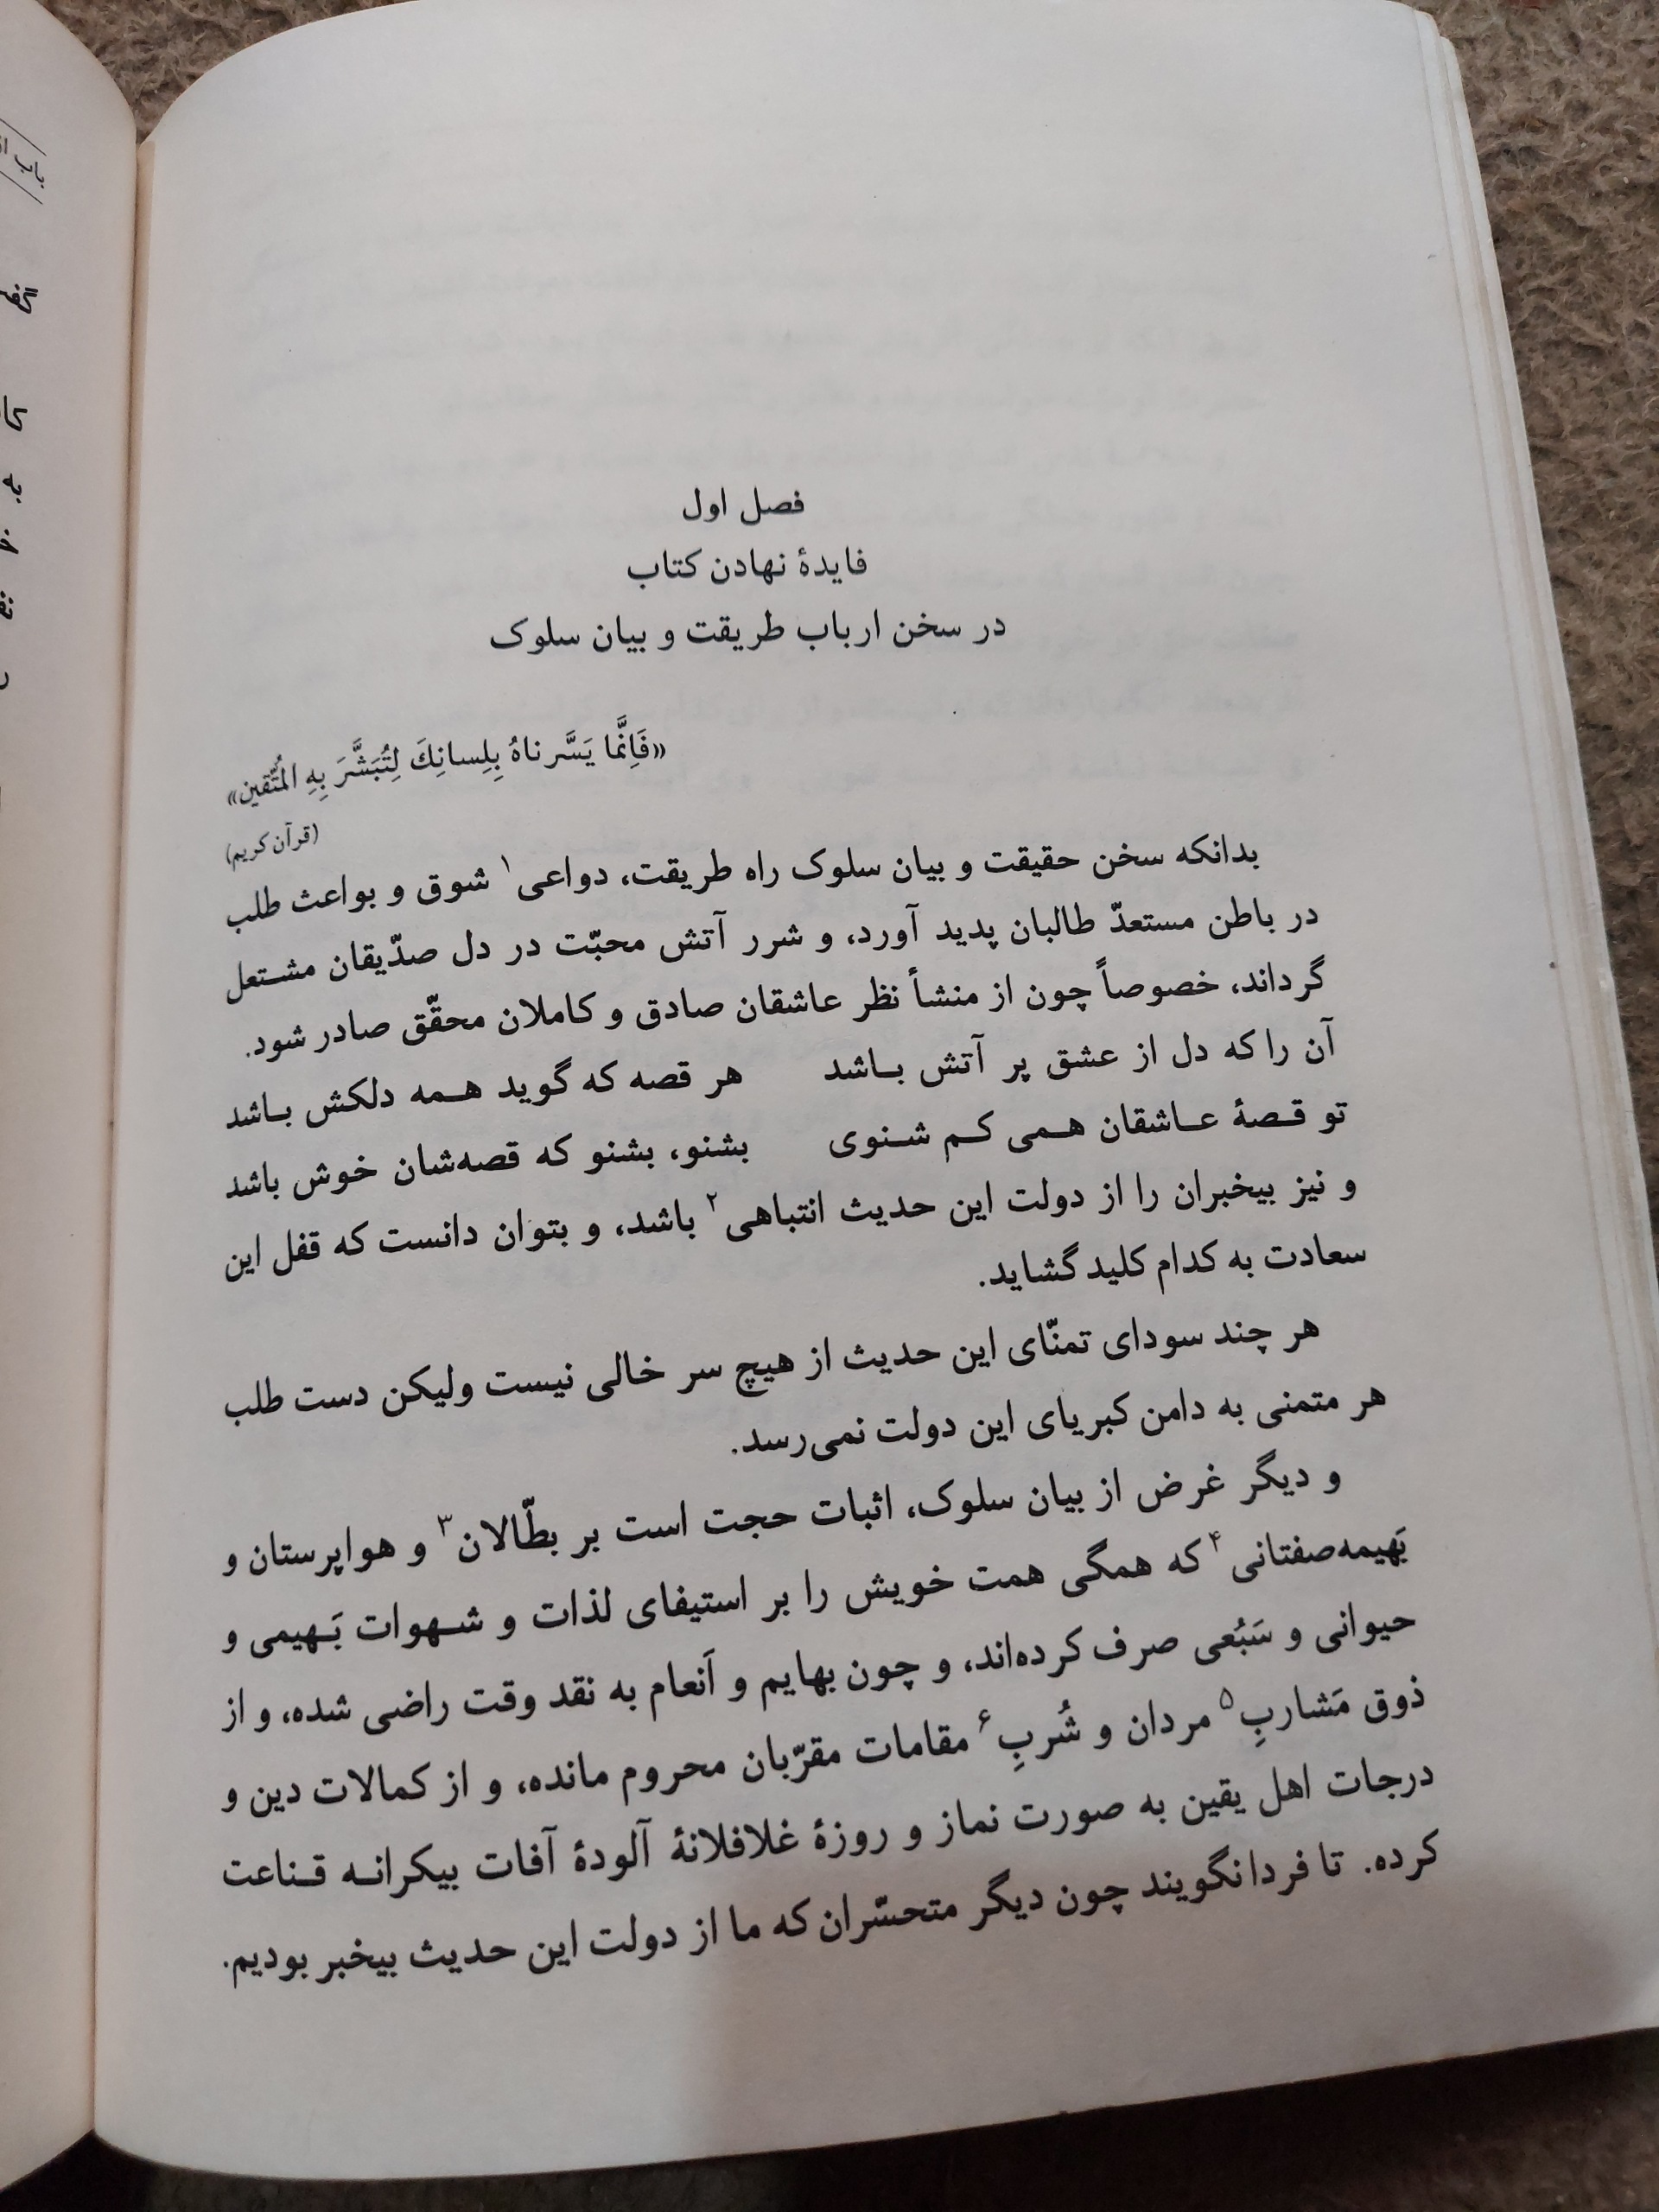 فصل اول
فایدهٔ نهادن کتاب
در سخن ارباب طریقت و بیان سلوک
«فَاِنَّما یَسَّرناهُ بِلِسانِكَ لِتُبَشَّرَ بِهِ المُتَّقین»
(قرآن کریم)
بدانکه سخن حقیقت و بیان سلوک راه طریقت، دواعی۱ شوق و بواعث طلب
در باطن مستعدّ طالبان پدید آورد، و شرر آتش محبّت در دل صدّیقان مشتعل
گرداند، خصوصاً چون از منشأ نظر عاشقان صادق و کاملان محقّق صادر شود.
آن را که دل از عشق پر آتش باشد هر قصه که گوید همه دلکش باشد
تو قصهٔ عاشقان همی کم شنوی بشنو، بشنو که قصه‌شان خوش باشد
و نیز بیخبران را از دولت این حدیث انتباهی۲ باشد، و بتوان دانست که قفل این
سعادت به کدام کلید گشاید.
هر چند سودای تمنّای این حدیث از هیچ سر خالی نیست ولیکن دست طلب
هر متمنی به دامن کبریای این دولت نمی‌رسد.
و دیگر غرض از بیان سلوک، اثبات حجت است بر بطّالان۳ و هواپرستان و
بَهیمه‌صفتانی۴ که همگی همت خویش را بر استیفای لذات و شهوات بَهیمی و
حیوانی و سَبُعی صرف کرده‌اند، و چون بهایم و اَنعام به نقد وقت راضی شده، و از
ذوق مَشاربِ۵ مردان و شُربِ۶ مقامات مقرّبان محروم مانده، و از کمالات دین و
درجات اهل یقین به صورت نماز و روزهٔ غلافلانهٔ آلودهٔ آفات بیکرانه قناعت
کرده. تا فردا نگویند چون دیگر متحسّران که ما از دولت این حدیث بیخبر بودیم.